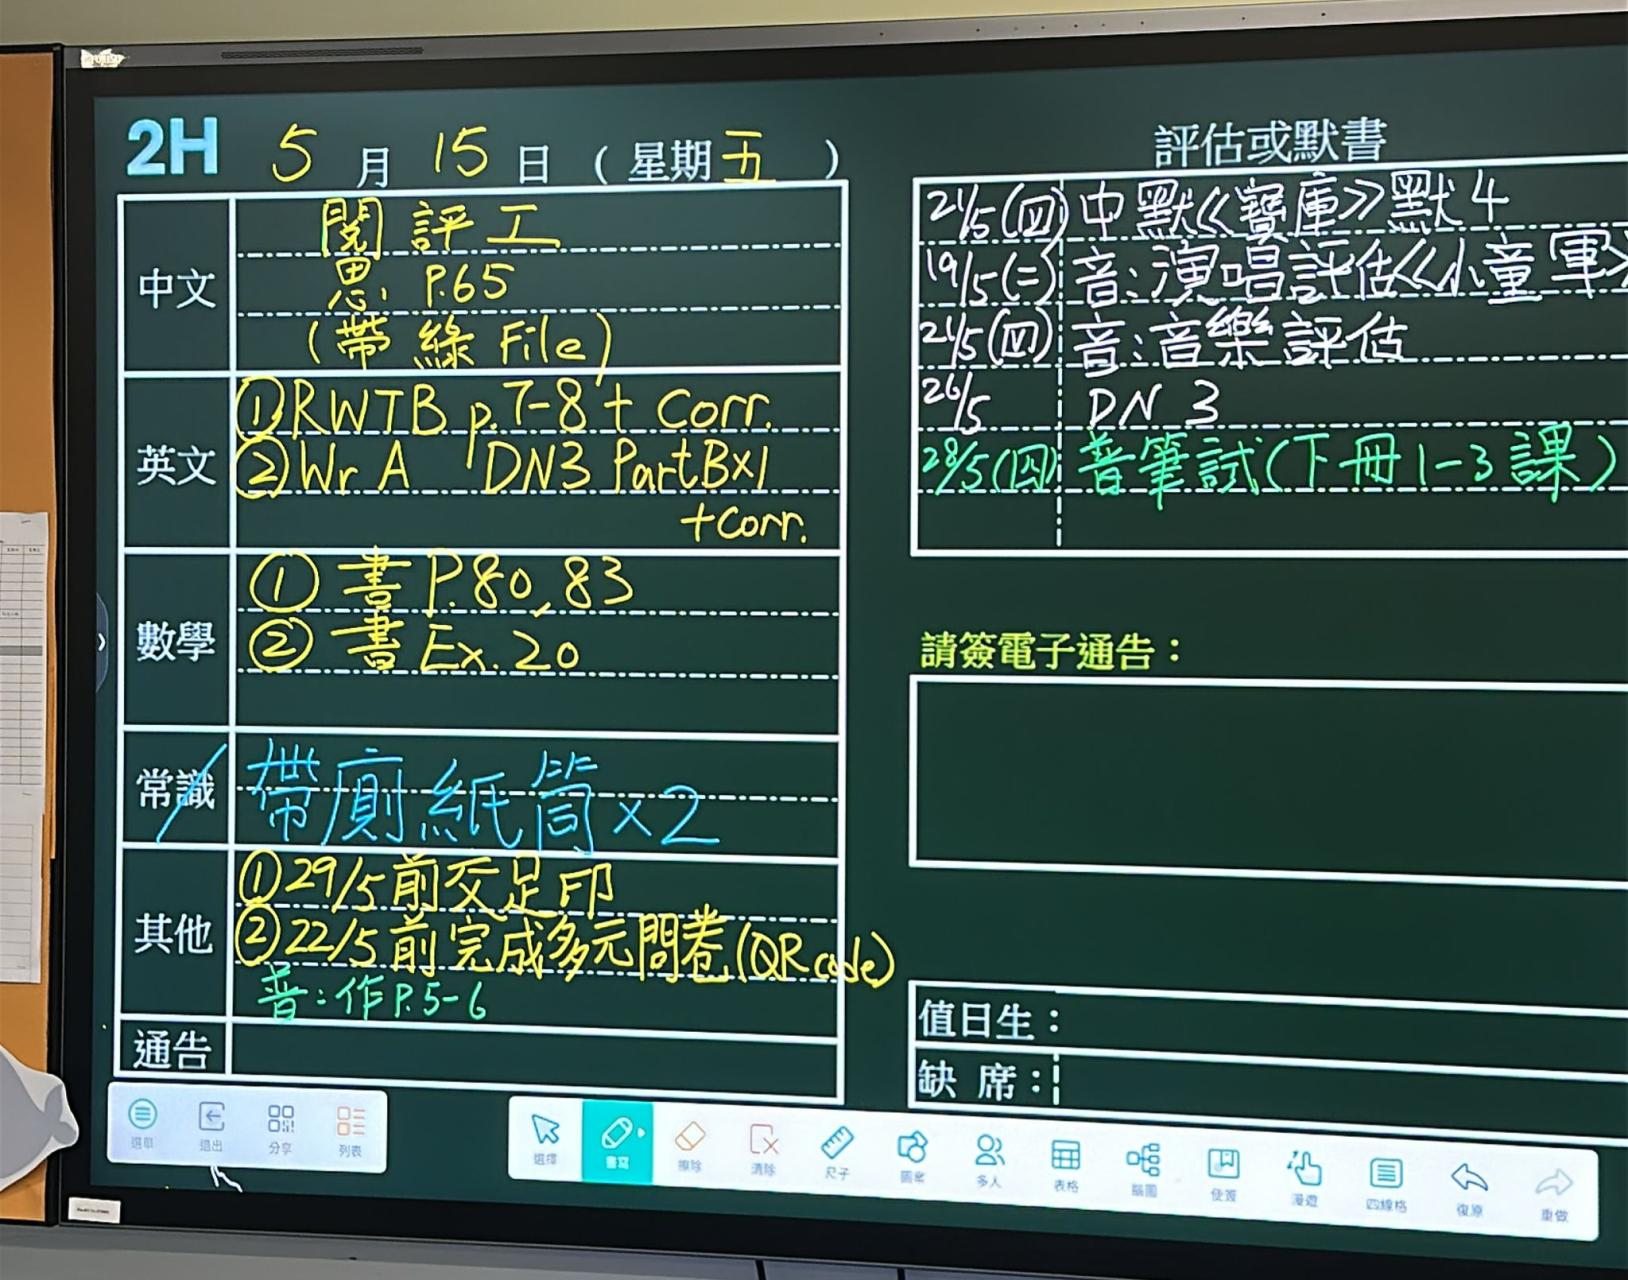 2H 5月15日（星期五）
中文
閱評工
思 P.65
(帶綠File)
英文
①RWTB p.7-8 + Corr.
②Wr A DN3 PartBx1
+Corr.
數學
① 書 P.80, 83
② 書 Ex. 20
常識
帶廁紙筒x2
其他
①29/5前交足印
②22/5前完成多元問卷(QR code)
普：作P.5-6
通告
評估或默書
21/5(四) 中默《寶庫》默4
19/5(二) 音:演唱評估《小童軍》
21/5(四) 音:音樂評估
26/5 DN 3
28/5(四) 普筆試(下冊1-3課)
請簽電子通告：
值日生：
缺席：
選單 退出 分享 列表
選擇 書寫 擦除 清除 尺子 圖案 多人 表格 腦圖 便簽 漫遊 四線格 復原 重做